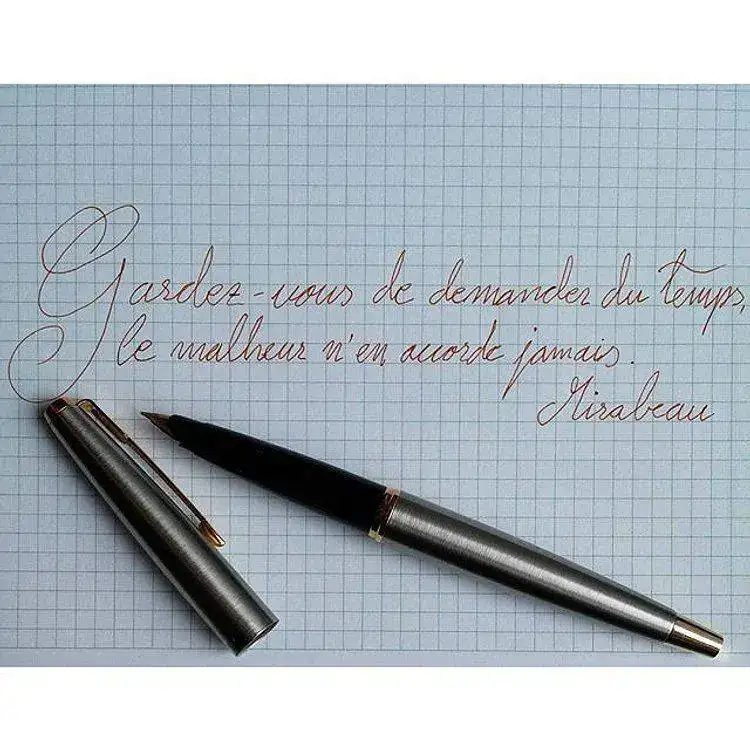 Gardez-vous de demander du temps,
le malheur n'en accorde jamais.
Mirabeau